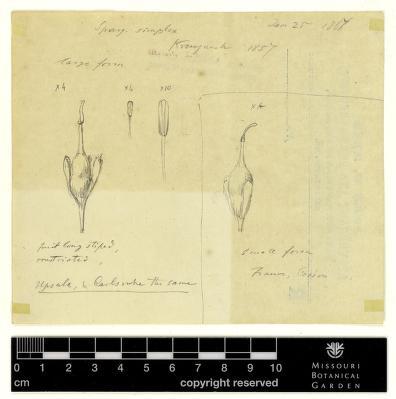 Sparg. simplex Jan 25 1887
1857
large form
x 4 x 4 x10 x 4
fruit long stiped,
constricted,
Upsala, & Carlsruhe the same
small form
0 1 2 3 4 5 6 7 8 9 10
cm copyright reserved
MISSOURI
BOTANICAL
GARDEN